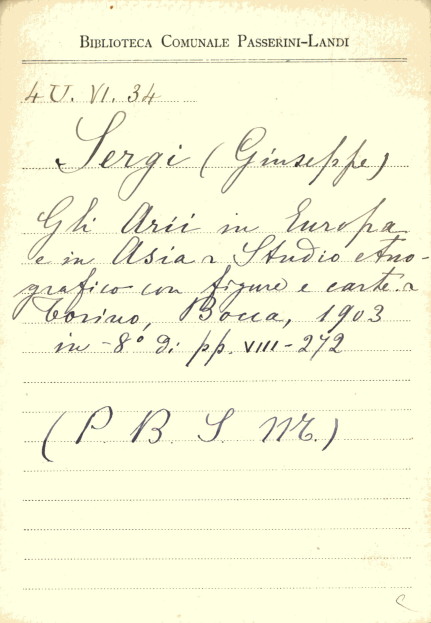 BIBLIOTECA COMUNALE PASSERINI-LANDI
4 U. VI. 34
Sergi (Giuseppe)
Gli Arii in Europa
e in Asia. Studio etno-
grafico con figure e carte.
Torino, Bocca, 1903
in-8° di pp. VIII-272
(P. B. S. M.)